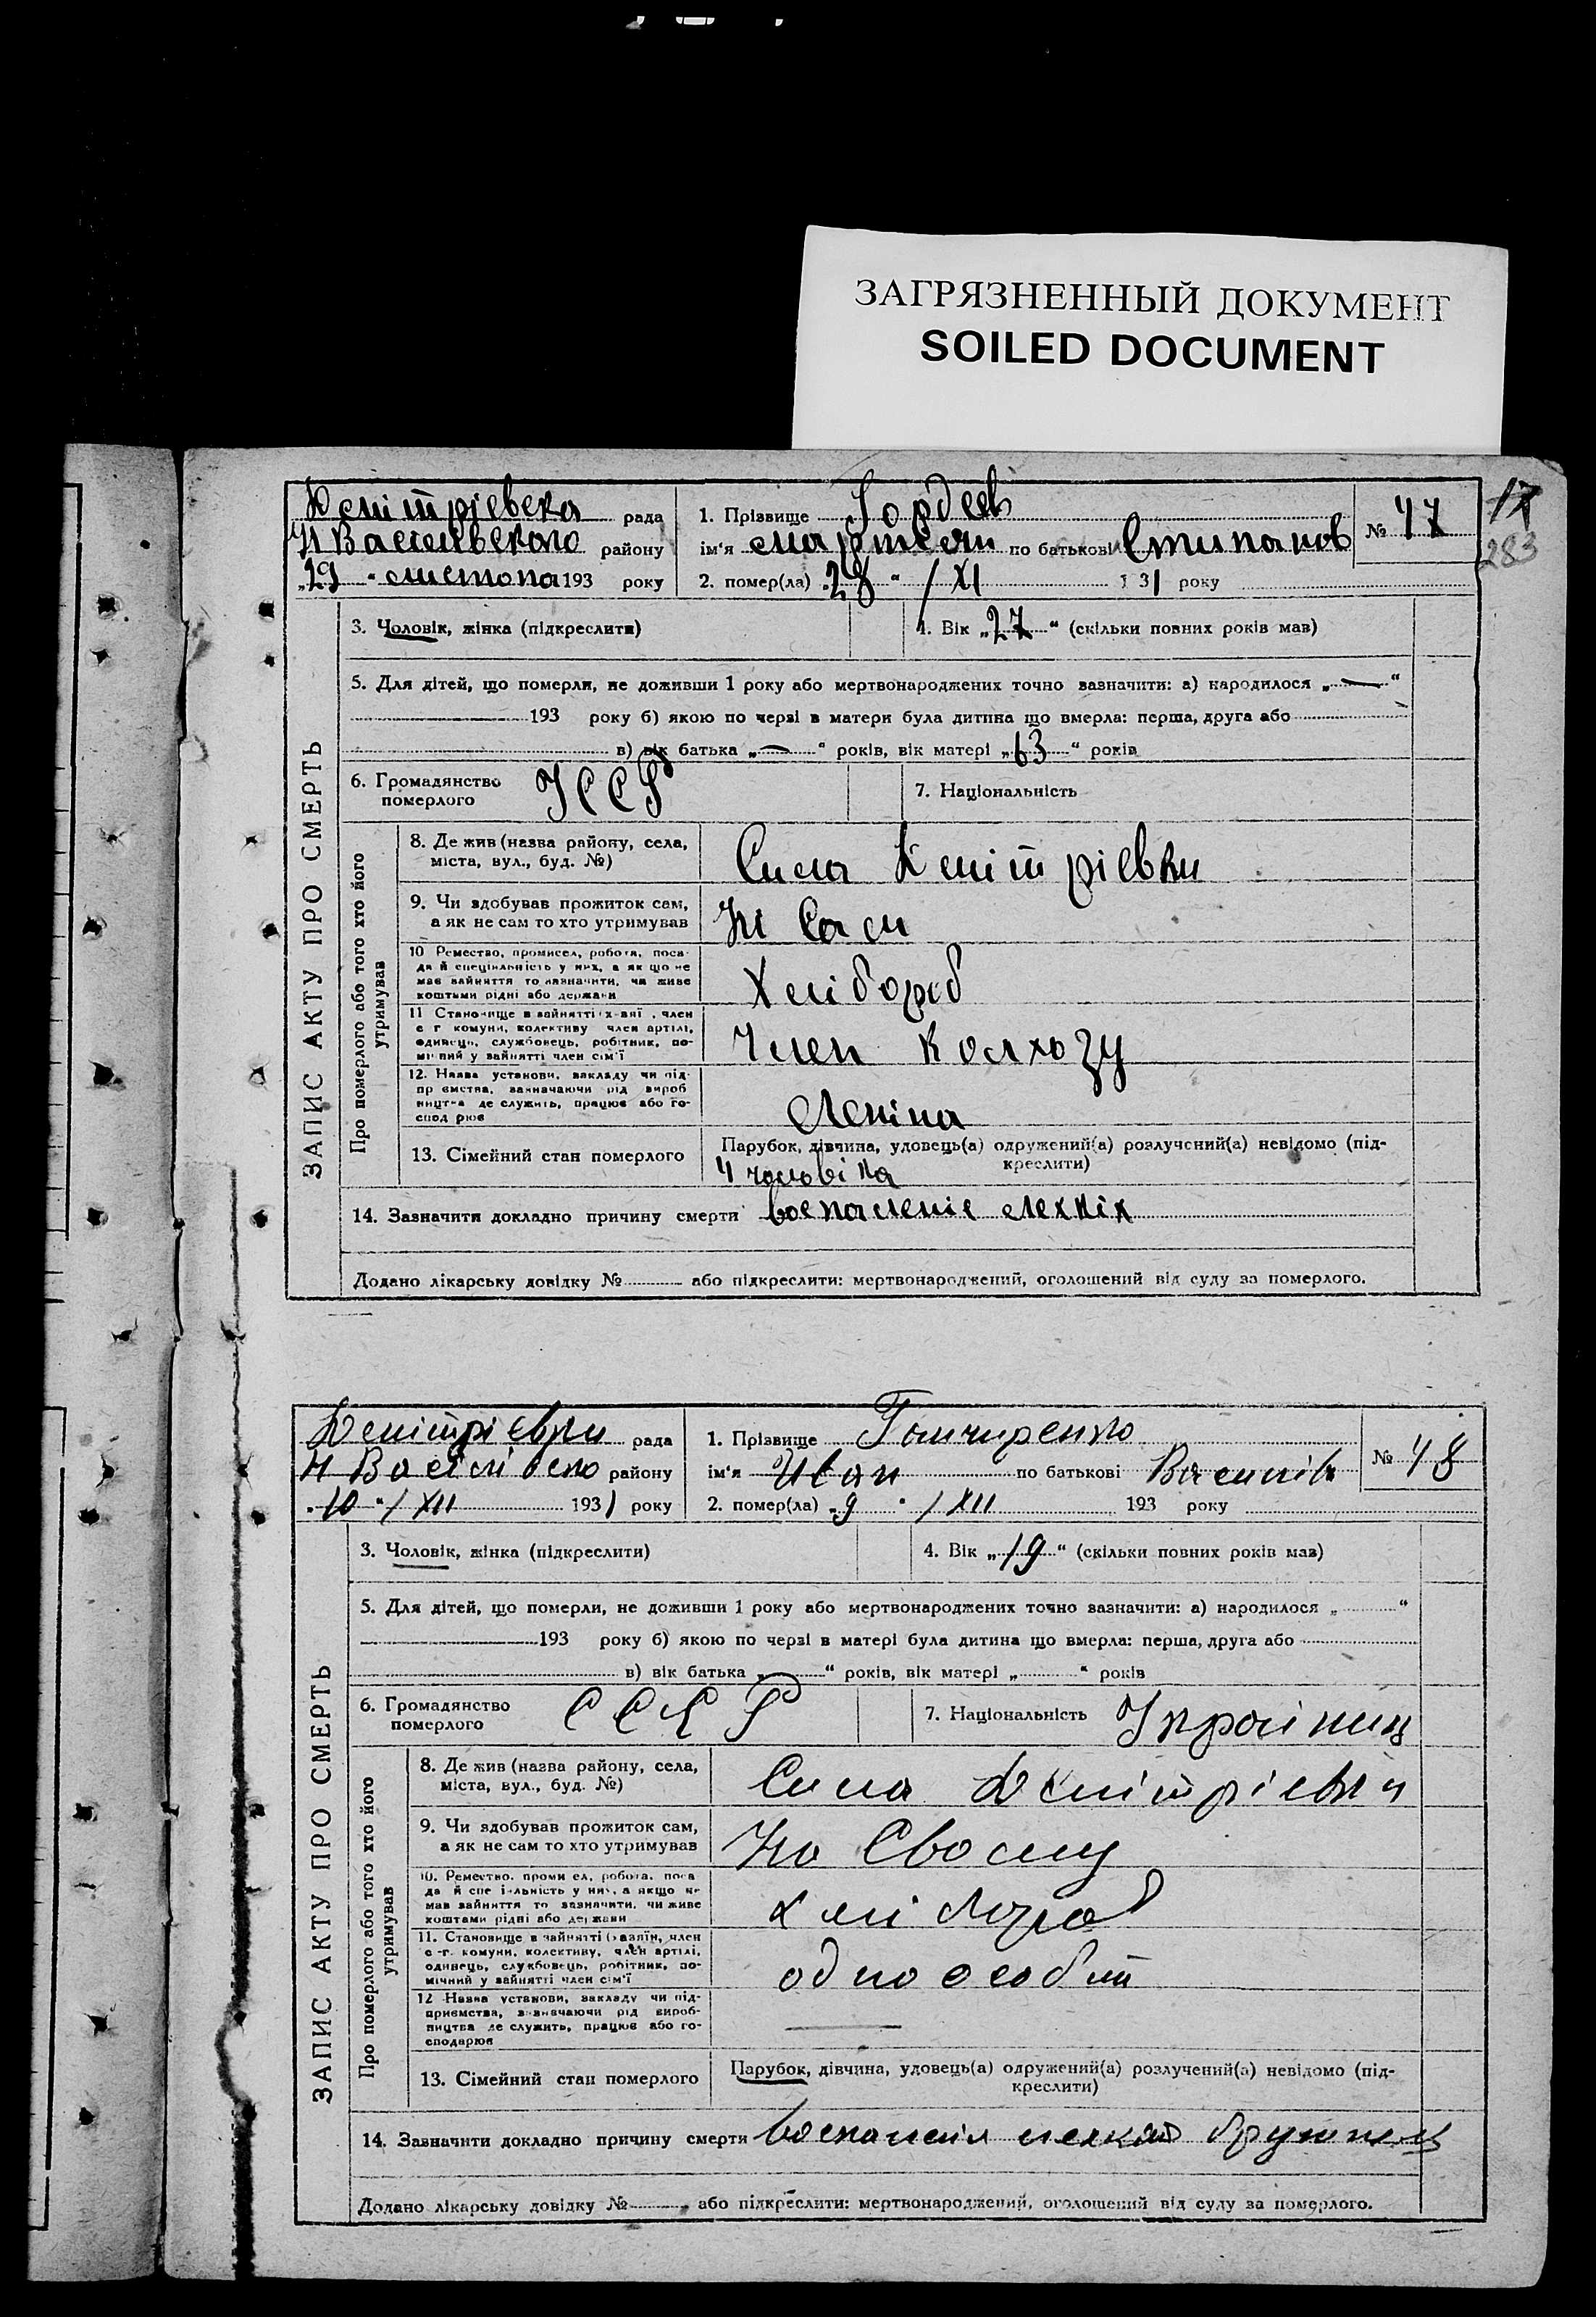 ЗАГРЯЗНЕННЫЙ ДОКУМЕНТ
SOILED DOCUMENT
17
283
рада
району
"29" 193 року
1. Прізвище Гордєєв
ім'я по батькові
№ 47
2. помер(ла) "28" /XI 131 року
ЗАПИС АКТУ ПРО СМЕРТЬ
3. Чоловік, жінка (підкреслити)
4. Вік „27“ (скільки повних років мав)
5. Для дітей, що померли, не доживши 1 року або мертвонароджених точно зазначити: а) народилося „—“
193 року б) якою по черзі в матери була дитина що вмерла: перша, друга або
в) вік батька „—“ років, вік матері „63“ років
6. Громадянство померлого УССР
7. Національність
Про померлого або того хто його утримував
8. Де жив (назва району, села,
міста, вул., буд. №)
9. Чи здобував прожиток сам,
а як не сам то хто утримував
10 Ремество, промисел, робота, поса-
да й спеціяльність у них, а як що не
має зайняття то зазначити, чи живе
коштами рідні або держави
Хлібороб
11 Становище в зайнятті член
с г комуни, колективу член артілі,
одинець, службовець, робітник, по-
мічний у зайнятті член сім'ї
Член колхозу
12. Назва установи, закладу чи під-
приємства, зазначаючи рід вироб
ництва де служить, працює або го-
спод рює
Леніна
13. Сімейний стан померлого
Парубок, дівчина, удовець(а) одружений(а) розлучений(а) невідомо (під-
креслити)
4 чоловіка
14. Зазначити докладно причину смерти воспаленіє лехкіх
Додано лікарську довідку № або підкреслити: мертвонароджений, оголошений від суду за померлого.
рада
району
"10" / XII 1931 року
1. Прізвище
ім'я Иван по батькові Василів
№ 48
2. помер(ла) "9" / XII 193 року
ЗАПИС АКТУ ПРО СМЕРТЬ
3. Чоловік, жінка (підкреслити)
4. Вік „19“ (скільки повних років мав)
5. Для дітей, що померли, не доживши 1 року або мертвонароджених точно зазначити: а) народилося „ “
193 року б) якою по черзі в матері була дитина що вмерла: перша, друга або
в) вік батька „ “ років, вік матері „ “ років
6. Громадянство померлого СССР
7. Національність
Про померлого або того хто його утримував
8. Де жив (назва району, села,
міста, вул., буд. №)
9. Чи здобував прожиток сам,
а як не сам то хто утримував
10. Ремество, робота, поса
да й у них, а якщо не
мав зайняття то зазначити, чи живе
коштами рідні або держави
хлібороб
11. Становище в зайнятті член
с-г. комуни, колективу, член артілі,
одинець, службовець, робітник, по-
мічний у зайнятті член сім'ї
12 Назва установи, закладу чи під-
приємства, зазначаючи рід вироб-
ництва де служить, працює або го-
сподарює
13. Сімейний стан померлого
Парубок, дівчина, удовець(а) одружений(а) розлучений(а) невідомо (під-
креслити)
14. Зазначити докладно причину смерти
Додано лікарську довідку № або підкреслити: мертвонароджений, оголошений від суду за померлого.